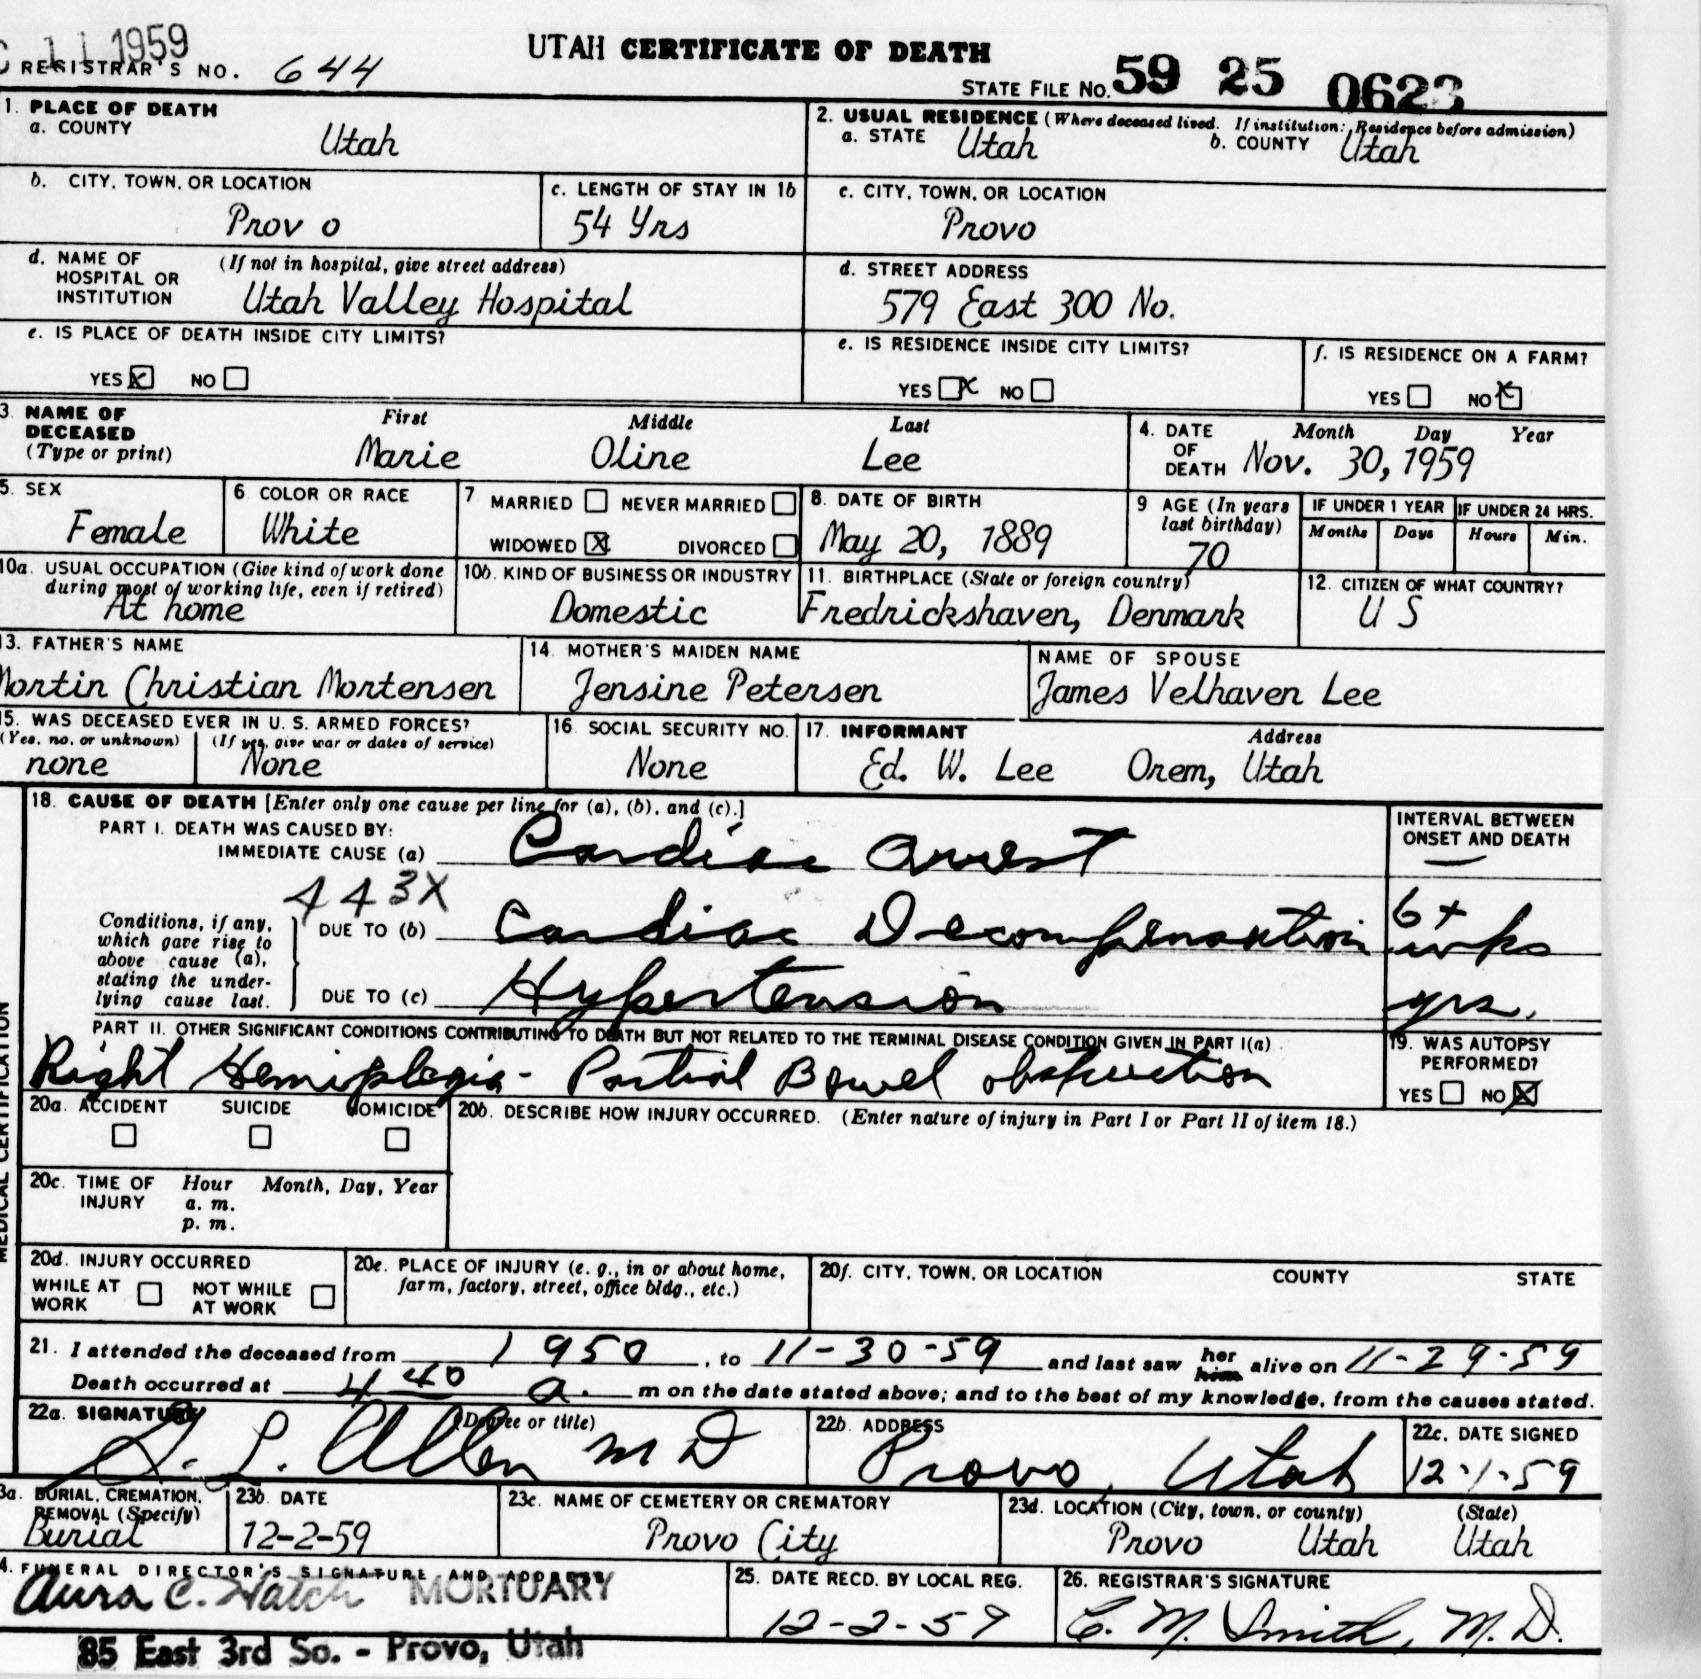 C 11 1959
REGISTRAR'S NO. 644
UTAH CERTIFICATE OF DEATH
STATE FILE NO. 59 25 0623
1. PLACE OF DEATH
a. COUNTY
Utah
2. USUAL RESIDENCE (Where deceased lived. If institution: Residence before admission)
a. STATE Utah b. COUNTY Utah
b. CITY, TOWN, OR LOCATION
Provo
c. LENGTH OF STAY IN 1b
54 Yrs
c. CITY, TOWN, OR LOCATION
Provo
d. NAME OF HOSPITAL OR INSTITUTION (If not in hospital, give street address)
Utah Valley Hospital
d. STREET ADDRESS
579 East 300 No.
e. IS PLACE OF DEATH INSIDE CITY LIMITS?
YES X NO
e. IS RESIDENCE INSIDE CITY LIMITS?
YES X NO
f. IS RESIDENCE ON A FARM?
YES NO X
3. NAME OF DECEASED (Type or print)
First Middle Last
Marie Oline Lee
4. DATE OF DEATH Month Day Year
Nov. 30, 1959
5. SEX
Female
6. COLOR OR RACE
White
7 MARRIED NEVER MARRIED
WIDOWED X DIVORCED
8. DATE OF BIRTH
May 20, 1889
9 AGE (In years last birthday)
70
IF UNDER 1 YEAR IF UNDER 24 HRS.
Months Days Hours Min.
10a. USUAL OCCUPATION (Give kind of work done during most of working life, even if retired)
At home
10b. KIND OF BUSINESS OR INDUSTRY
Domestic
11. BIRTHPLACE (State or foreign country)
Fredrickshaven, Denmark
12. CITIZEN OF WHAT COUNTRY?
U S
13. FATHER'S NAME
Mortin Christian Mortensen
14. MOTHER'S MAIDEN NAME
Jensine Petersen
NAME OF SPOUSE
James Velhaven Lee
15. WAS DECEASED EVER IN U. S. ARMED FORCES?
(Yes, no, or unknown) (If yes, give war or dates of service)
none None
16. SOCIAL SECURITY NO.
None
17. INFORMANT Address
Ed. W. Lee Orem, Utah
MEDICAL CERTIFICATION
18. CAUSE OF DEATH [Enter only one cause per line for (a), (b), and (c).]
PART I. DEATH WAS CAUSED BY:
IMMEDIATE CAUSE (a) Cardiac arrest
INTERVAL BETWEEN ONSET AND DEATH
—
443X
Conditions, if any, which gave rise to above cause (a), stating the underlying cause last.
DUE TO (b) Cardiac Decompensation 6+ wks
DUE TO (c) Hypertension yrs.
PART II. OTHER SIGNIFICANT CONDITIONS CONTRIBUTING TO DEATH BUT NOT RELATED TO THE TERMINAL DISEASE CONDITION GIVEN IN PART I(a)
Right Hemiplegia - Partial Bowel obstruction
19. WAS AUTOPSY PERFORMED?
YES NO X
20a. ACCIDENT SUICIDE HOMICIDE
20b. DESCRIBE HOW INJURY OCCURRED. (Enter nature of injury in Part I or Part II of item 18.)
20c. TIME OF INJURY Hour Month, Day, Year
a. m.
p. m.
20d. INJURY OCCURRED
WHILE AT WORK NOT WHILE AT WORK
20e. PLACE OF INJURY (e. g., in or about home, farm, factory, street, office bldg., etc.)
20f. CITY, TOWN, OR LOCATION COUNTY STATE
21. I attended the deceased from 1950, to 11-30-59 and last saw her him alive on 11-29-59
Death occurred at 4 40 a. m on the date stated above; and to the best of my knowledge, from the causes stated.
22a. SIGNATURE (Degree or title)
G. L. Allen M D
22b. ADDRESS
Provo, Utah
22c. DATE SIGNED
12-1-59
3a. BURIAL, CREMATION, REMOVAL (Specify)
Burial
23b. DATE
12-2-59
23c. NAME OF CEMETERY OR CREMATORY
Provo City
23d. LOCATION (City, town, or county) (State)
Provo Utah Utah
4. FUNERAL DIRECTOR'S SIGNATURE AND ADDRESS
C. Hatch MORTUARY
85 East 3rd So. - Provo, Utah
25. DATE RECD. BY LOCAL REG.
12-2-59
26. REGISTRAR'S SIGNATURE
C. M. Smith, M. D.